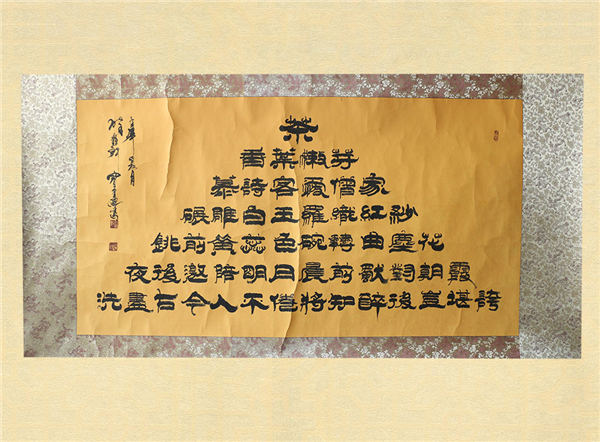 茶
香葉嫩芽
慕詩客愛僧家
碾雕白玉羅織紅紗
銚煎黃蕊色碗轉曲塵花
夜後邀陪明月晨前對朝霞
洗盡古今人不倦將知醉後豈堪誇